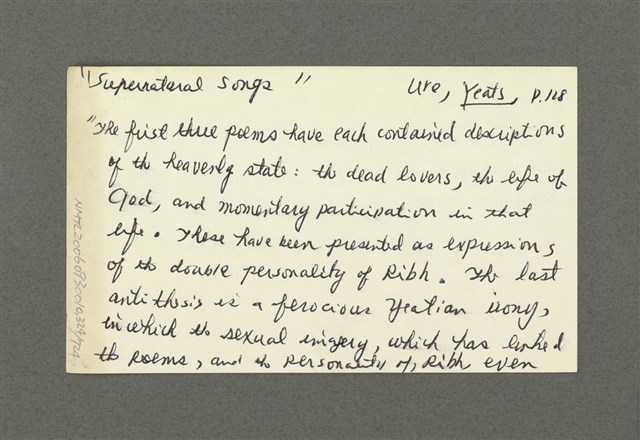 "Supernatural Songs" Ure, Yeats, P.128
"The first three poems have each contained descriptions
of th heavenly state: th dead lovers, the life of
God, and momentary participation in that
life. These have been presented as expressions
of th double personality of Ribh. The last
antithesis is a ferocious Yeatian irony,
in which th sexual imgery, which has linked
th poems, and th personality of, Ribh even